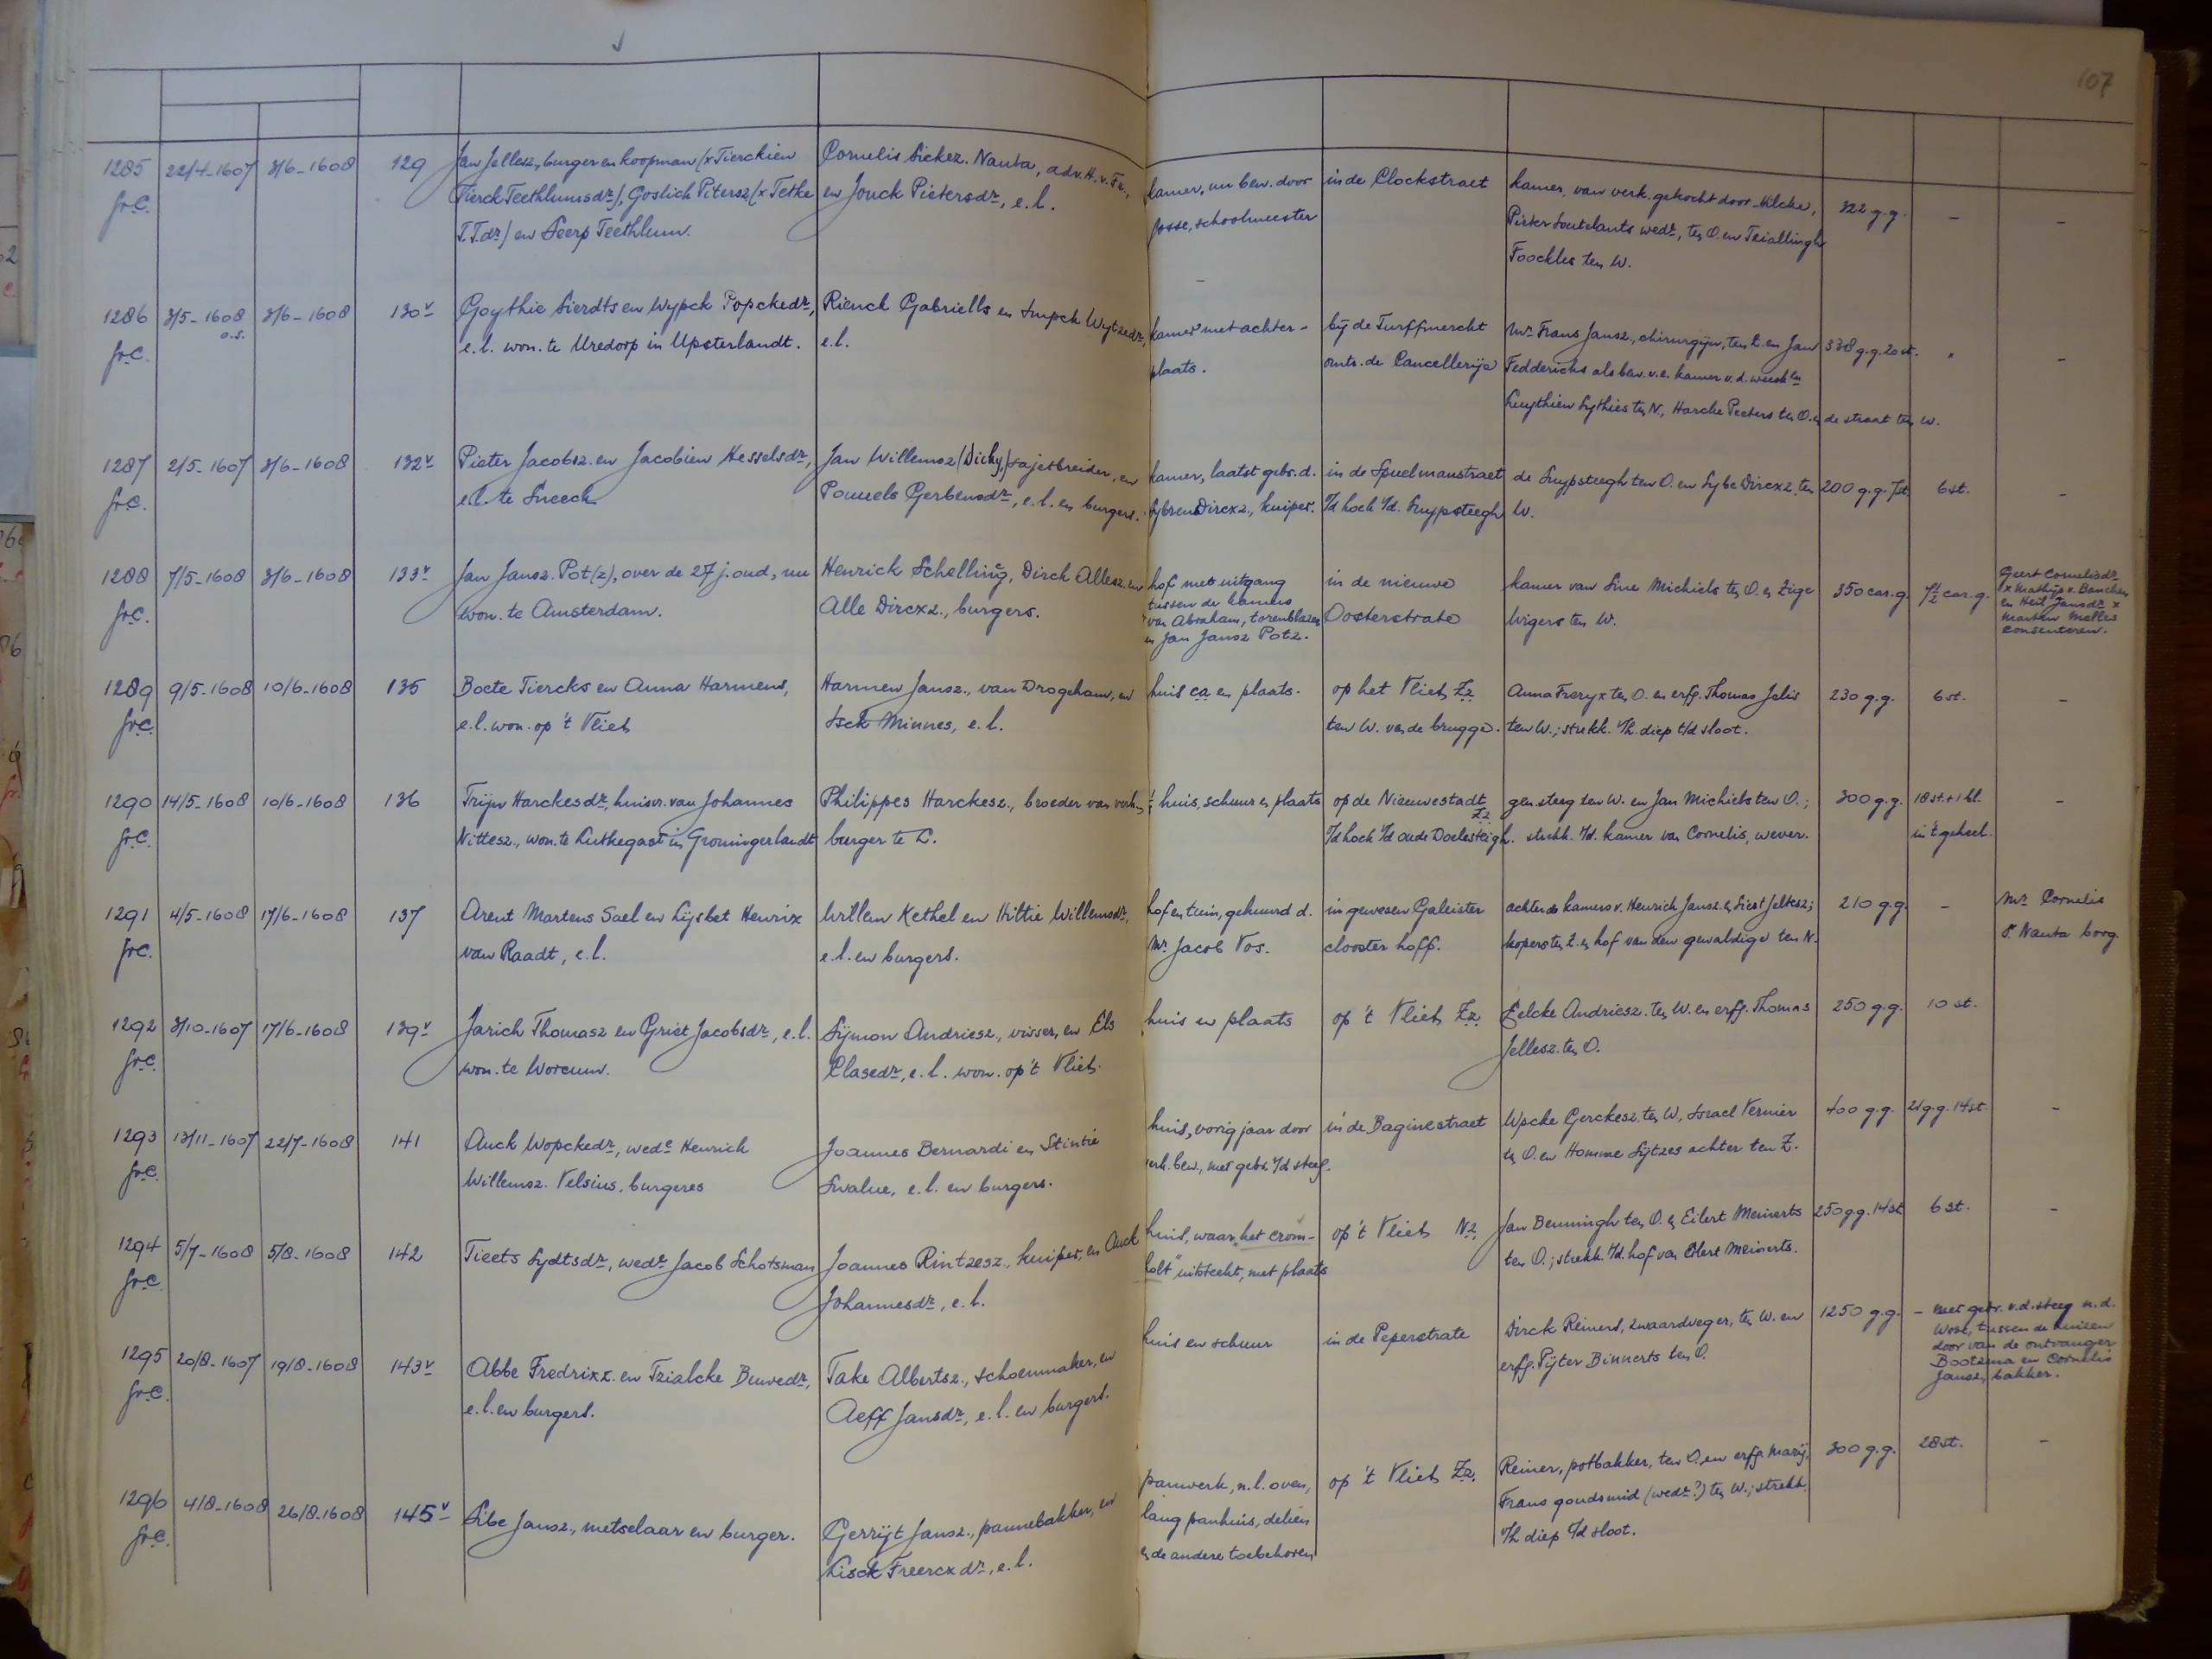 107
1285 22/4-1607 3/6-1608 129 Jan Jellesz, burger en koopman (x Tierckien Cornelis Sickez. Nauta, adv. H. v. Fr., kamer, nu bew. door in de Clockstraet kamer, van verk. gekocht door Ulcke, 322 g.g. - -
fr.C. Tierck Teethlumsdr), Goslick Pitersz (x Tetke en Jouck Pietersdr, e.l. Josse, schoolmeester Pieter wedr, ten O. en Teiallingh
T.T.dr) en Seerp Teethlum. Foockles ten W.
1286 3/5-1608 3/6-1608 130v Goythie Sierdts en Wypck Popckedr, Rienck Gabriells en Impck Wytzedr, kamer met achter- bij de Turffmerckt Mr. Frans Jansz., chirurgijn, ten Z. en Jan 338 g.g. 20 st. " -
o.s.
fr.C. e.l. won. te Uredorp in Upsterlandt. e.l. plaats. omtr. de Cancellerije Fedderichs als bew. v.e. kamer v.d. weeskn
Luythien Lythies ten N., Harcke Peeters ten O. en de straat ten W.
1287 2/5-1607 3/6-1608 132v Pieter Jacobsz. en Jacobien Hesselsdr, Jan Willemsz (Dicky,) sajetbreider, en kamer, laatst gebr. d. in de Spuelmanstraet de Suypsteegh ten O. en Sybe Dircxz. ten 200 g.g. 7 st. 6 st. -
fr.C. e.l. te Sneeck Pouwels Gerbensdr, e.l. en burgers. Sybren Dircxz., kuiper. i/d hoek v/d. Suypsteegh W.
1288 7/5-1608 3/6-1608 133v Jan Jansz. Pot(z), over de 27 j. oud, nu Henrick Schelling, Dirck Allesz. en hof met uitgang in de nieuwe kamer van Sine Michiels ten O. en Zige 350 car.g. 7½ car.g. Geert Cornelisdr
fr.C. won. te Amsterdam. Alle Dircxz., burgers. tussen de kamers Oosterstrate Wigers ten W. x Mathijs v. Banchen
van Abraham, torenblazer en Heil Jansdr x
en Jan Jansz Potz. Marten Melles
consenteren.
1289 9/5-1608 10/6-1608 135 Bocte Tiercks en Anna Harmens, Harmen Jansz., van Drogeham, en huis ca en plaats. op het Vliet Zz. Anna Freryx ten O. en erfg. Thomas Jelis 230 g.g. 6 st. -
fr.C. e.l. won. op 't Vliet Isck Minnes, e.l. ten W. van de brugge. ten W.; strekk. v/h. diep t/d sloot.
1290 14/5-1608 10/6-1608 136 Trijn Harckesdr, huisvr. van Johannes Philippes Harckesz., broeder van verk., huis, schuur en plaats op de Nieuwestadt Zz. gen. steeg ten W. en Jan Michiels ten O.; 300 g.g. 18 st. + 1 bl. -
fr.C. Nittesz., won. te Lutkegast in Groningerlandt burger te L. i/d hoek v/d oude Doelesteigh. strekk. t/d. kamer van Cornelis, wever. in 't geheel.
1291 4/5-1608 17/6-1608 137 Arent Martens Sael en Lijsbet Henrix Willem Kethel en Hittie Willemsdr, hof en tuin, gehuurd d. in gewesen Galeister achter de kamers v. Henrick Jansz. en Siest Jeltesz; 210 g.g. - Mr. Cornelis
fr.C. van Raadt, e.l. e.l. en burgers. Mr. Jacob Vos. clooster hoff. kopers ten Z. en hof van den gewaldige ten N. S. Nauta borg.
1292 3/10-1607 17/6-1608 139v Jarich Thomasz en Griet Jacobsdr, e.l. Sijmon Andriesz., visser, en Els huis en plaats op 't Vliet Zz. Eelcke Andriesz. ten W. en erfg. Thomas 250 g.g. 10 st.
fr.C. won. te Worcum. Clasedr, e.l. won. op 't Vliet. Jellesz. ten O.
1293 13/11-1607 22/7-1608 141 Auck Wopckedr, wede Henrick Joannes Bernardi en Stintie huis, vorig jaar door in de Baginestraet Wpcke Gerckesz. ten W, Israel Vernier 400 g.g. 21 g.g. 14 st. -
fr.C. Willemsz. Velsius, burgeres Swalue, e.l. en burgers. verk. bew., met gebr. v/d steeg. ten O. en Homme Sytzes achter ten Z.
1294 5/7-1608 5/8-1608 142 Tieets Sydtsdr, wedr Jacob Schotsman Joannes Rintzesz., kuiper, en Auck huis, waar "het crom- op 't Vliet Nz. Jan Benningh ten O. en Eilert Meinerts 250 g.g. 14 st 6 st. -
fr.C. Johannesdr, e.l. holt" uitsteekt, met plaats ten O.; strekk. t/d. hof van Eilert Meinerts.
1295 20/8-1607 19/8-1608 143v Abbe Fredrixz. en Tzialcke Buwedr, Take Albertsz., schoenmaker, en huis en schuur in de Peperstrate Dirck Reiners, zwaardveger, ten W. en 1250 g.g. - met gebr. v.d. steeg n.d.
fr.C. e.l. en burgers. Aeff Jansdr, e.l. en burgers. erfg. Pijter Binnerts ten O. Wose, tussen de huizen
door van de ontvanger
Bootsma en Cornelis
Jansz, bakker.
1296 4/8-1608 26/8-1608 145v Sibe Jansz., metselaar en burger. Gerrijt Jansz., pannebakker, en panwerk, n.l. oven, op 't Vliet Zz. Reiner, potbakker, ten O. en erfg. Marij, 300 g.g. 28 st. -
fr.C. Lisck Freercxdr, e.l. lang panhuis, delien Frans goudsmid (wedr?) ten W.; strekk.
en de andere toebehoren v/h diep t/d sloot.